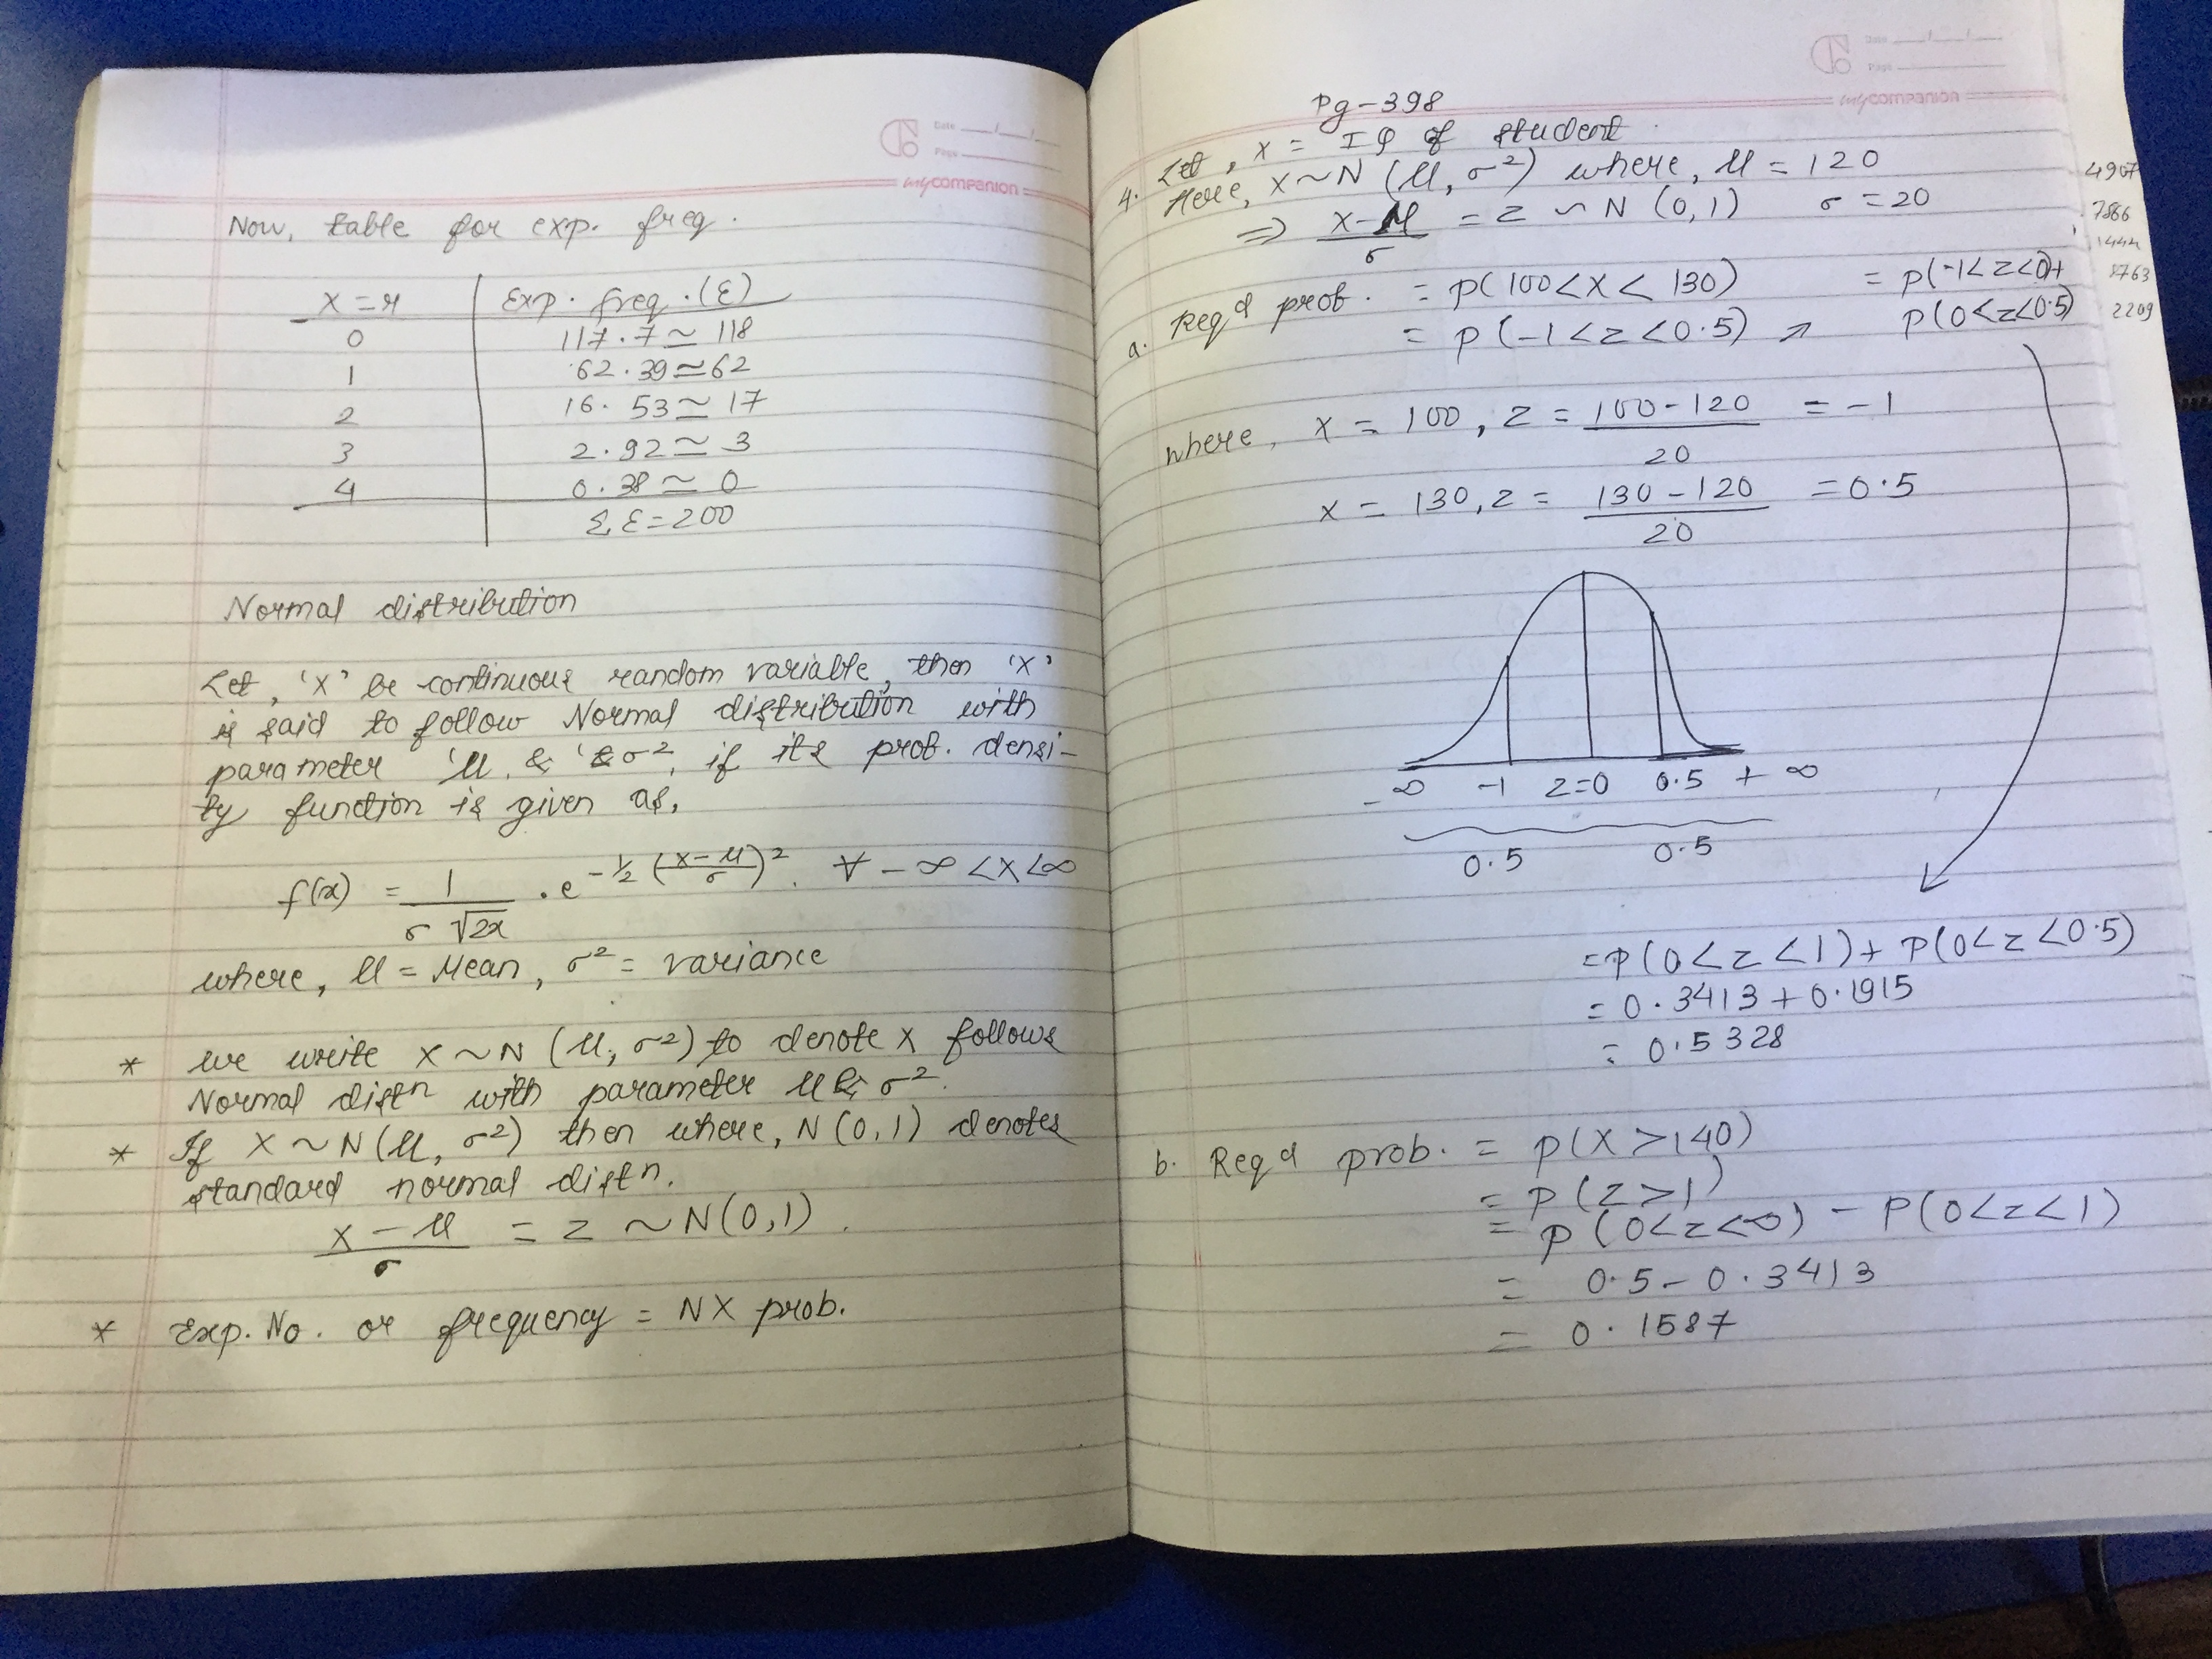 Date
Page
mycompanion
Now, table for exp. freq.
X = r | Exp. freq. (E)
0 | 117.7 ≃ 118
1 | 62.39 ≃ 62
2 | 16.53 ≃ 17
3 | 2.92 ≃ 3
4 | 0.38 ≃ 0
Σ E = 200
Normal distribution
Let, 'X' be continuous random variable, then 'X'
is said to follow Normal distribution with
parameter 'μ & σ², if its prob. densi-
ty function is given as,
f(x) = 1/(σ √2π) . e^(-½ ((x-μ)/σ)²) . ∀ -∞ < X < ∞
where, μ = Mean, σ² = variance
* we write X ~ N (μ, σ²) to denote X follows
Normal distⁿ with parameter μ & σ².
* If X ~ N(μ, σ²) then where, N (0,1) denotes
standard normal distⁿ.
(X - μ)/σ = Z ~ N(0,1).
* Exp. No. or frequency = N X prob.
Date
Page
mycompanion
Pg-398
4. Let, X = IQ of student.
Here, X ~ N (μ, σ²) where, μ = 120
⇒ (X-μ)/σ = Z ~ N (0,1) σ = 20
4907
7886
1444
2209
a. Reqd prob. = P(100 < X < 130) = P(-1 < Z < 0) +
= P(-1 < Z < 0.5) ↗ P(0 < Z < 0.5)
where, X = 100, Z = (100-120)/20 = -1
X = 130, Z = (130-120)/20 = 0.5
-∞ -1 Z=0 0.5 +∞
0.5 0.5
= P(0 < Z < 1) + P(0 < Z < 0.5)
= 0.3413 + 0.1915
= 0.5328
b. Reqd prob. = P(X > 140)
= P(Z > 1)
= P(0 < Z < ∞) - P(0 < Z < 1)
= 0.5 - 0.3413
= 0.1587